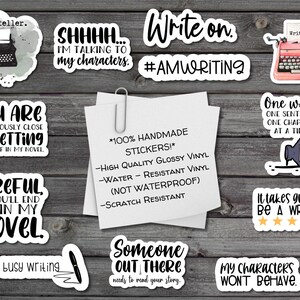 teller.
SHHHH...
I'M TALKING TO
my characters.
Write on.
#AMWRITING
ARE
CLOSE
IN MY NOVEL.
*100% HANDMADE
STICKERS!*
-High Quality Glossy Vinyl
-Water - Resistant Vinyl
(NOT WATERPROOF)
-Scratch Resistant
One w
ONE SENT
ONE CHAP
AT A TI
END
IN MY
busy writing
Someone
OUT THERE
needs to read your story.
It takes gu
BE A W
MY CHARACTERS
WON'T BEHAVE